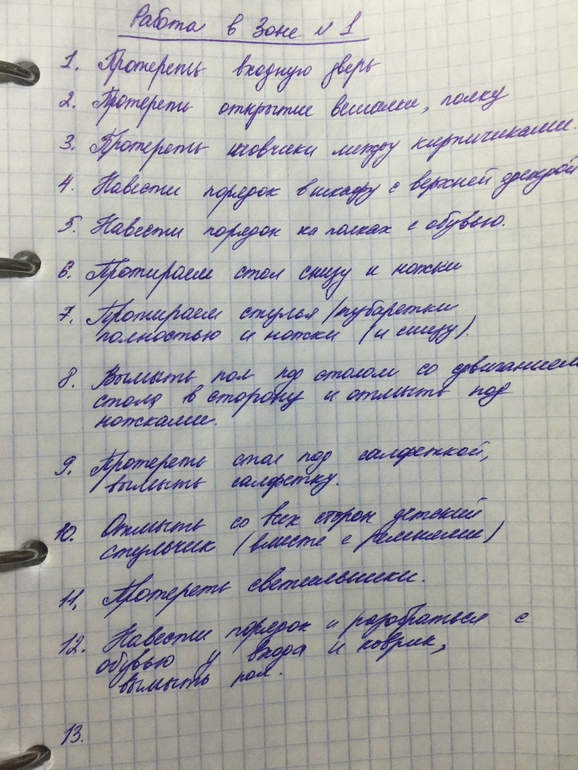 Работа в Зоне № 1
1. Протереть входную дверь
2. Протереть открытые вешалки, полку
3. Протереть шовчики между кирпичиками.
4. Навести порядок в шкафу с верхней одеждой
5. Навести порядок на полках с обувью.
6. Протираем стол снизу и ножки
7. Протираем стулья/тубаретки
полностью и ножки (и снизу).
8. Вымыть пол под столом со сдвиганием
стола в сторону и отмыть под
ножками.
9. Протереть стол под салфеткой,
вымыть салфетку.
10. Отмыть со всех сторон детский
стульчик (вместе с ремнями)
11. Протереть светильники.
12. Навести порядок и разобраться с
обувью у входа и коврик,
вымыть пол.
13.